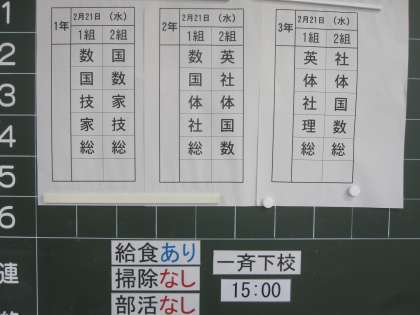 1
2
3
4
5
6
連
1年 2月21日(水)
1組 2組
数 国
国 数
技 家
家 技
総 総
2年 2月21日(水)
1組 2組
数 英
国 社
体 体
社 国
総 数
3年 2月21日(水)
1組 2組
英 社
体 体
社 国
理 数
総 総
給食あり
掃除なし
部活なし
一斉下校
15:00